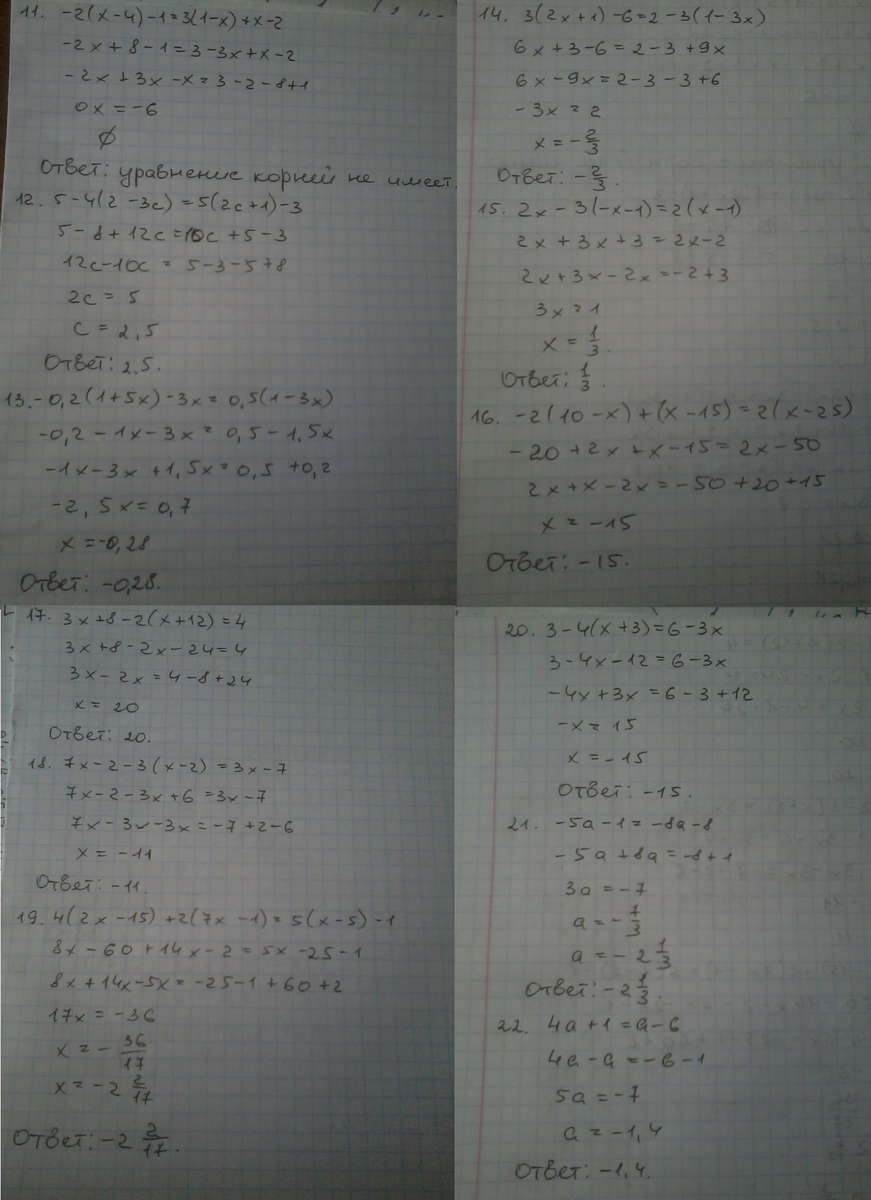 11. -2(x-4)-1=3(1-x)+x-2
-2x+8-1=3-3x+x-2
-2x+3x-x=3-2-8+1
0x=-6
∅
Ответ: уравнение корней не имеет.
12. 5-4(2-3c)=5(2c+1)-3
5-8+12c=10c+5-3
12c-10c=5-3-5+8
2c=5
c=2,5
Ответ: 2,5.
13. -0,2(1+5x)-3x=0,5(1-3x)
-0,2-1x-3x=0,5-1,5x
-1x-3x+1,5x=0,5+0,2
-2,5x=0,7
x=-0,28
Ответ: -0,28.
14. 3(2x+1)-6=2-3(1-3x)
6x+3-6=2-3+9x
6x-9x=2-3-3+6
-3x=2
x=-2/3
Ответ: -2/3.
15. 2x-3(-x-1)=2(x-1)
2x+3x+3=2x-2
2x+3x-2x=-2+3
3x=1
x=1/3.
Ответ: 1/3.
16. -2(10-x)+(x-15)=2(x-25)
-20+2x+x-15=2x-50
2x+x-2x=-50+20+15
x=-15
Ответ: -15.
17. 3x+8-2(x+12)=4
3x+8-2x-24=4
3x-2x=4-8+24
x=20
Ответ: 20.
18. 7x-2-3(x-2)=3x-7
7x-2-3x+6=3x-7
7x-3x-3x=-7+2-6
x=-11
Ответ: -11.
19. 4(2x-15)+2(7x-1)=5(x-5)-1
8x-60+14x-2=5x-25-1
8x+14x-5x=-25-1+60+2
17x=-36
x=-36/17
x=-2 2/17
Ответ: -2 2/17.
20. 3-4(x+3)=6-3x
3-4x-12=6-3x
-4x+3x=6-3+12
-x=15
x=-15
Ответ: -15.
21. -5a-1=-8a-8
-5a+8a=-8+1
3a=-7
a=-7/3
a=-2 1/3
Ответ: -2 1/3.
22. 4a+1=a-6
4a-a=-6-1
5a=-7
a=-1,4
Ответ: -1,4.